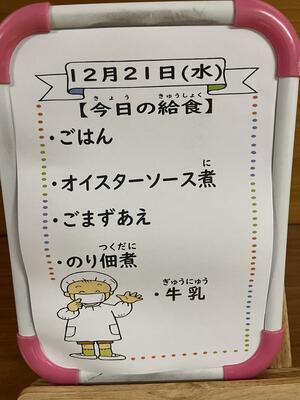 12月21日(水)
きょう きゅうしょく
【今日の給食】
・ごはん
に
・オイスターソース煮
・ごまずあえ
つくだに
・のり佃煮
ぎゅうにゅう
・牛乳